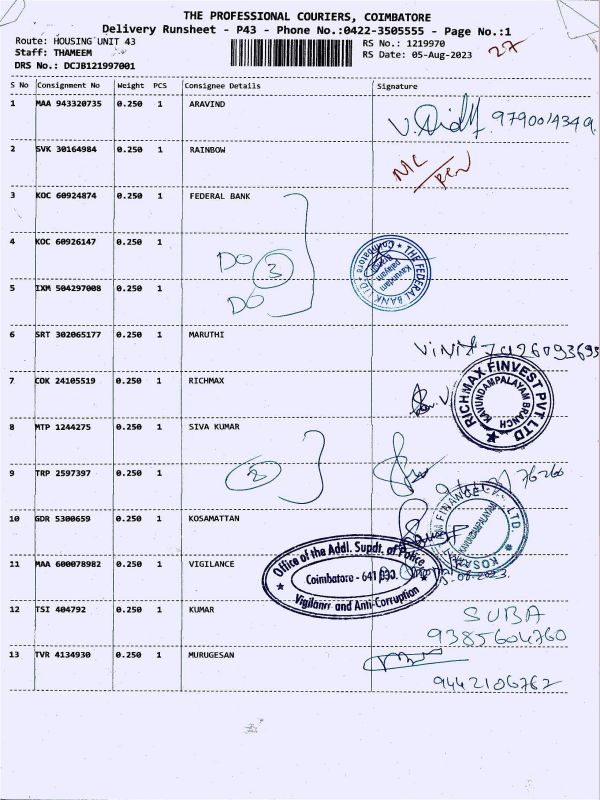 THE PROFESSIONAL COURIERS, COIMBATORE
Delivery Runsheet - P43 - Phone No.:0422-3505555 - Page No.:1
Route: HOUSING UNIT 43
RS No.: 1219970
Staff: THAMEEM
RS Date: 05-Aug-2023
27
DRS No.: DCJB121997001
S No Consignment No Weight PCS Consignee Details Signature
1 MAA 943320735 0.250 1 ARAVIND
9790014349.
2 SVK 30164984 0.250 1 RAINBOW
3 KOC 60924874 0.250 1 FEDERAL BANK
4 KOC 60926147 0.250 1
DO
3
THE FEDERAL BANK LTD
Kavundam
palayam
Branch
Coimbatore
5 IXM 504297008 0.250 1
DO
6 SRT 302065177 0.250 1 MARUTHI
7 COK 24105519 0.250 1 RICHMAX
RICHMAX FINVEST PVT. LTD
KAVUNDAMPALAYAM BRANCH
8 MTP 1244275 0.250 1 SIVA KUMAR
9 TRP 2597397 0.250 1
2
10 GDR 5300659 0.250 1 KOSAMATTAN
11 MAA 600078982 0.250 1 VIGILANCE
Office of the Addl. Supdt. of Police
Coimbatore - 641 030.
Vigilance and Anti-Corruption
12 TSI 404792 0.250 1 KUMAR
SUBA
9385604760
13 TVR 4134930 0.250 1 MURUGESAN
9442106762